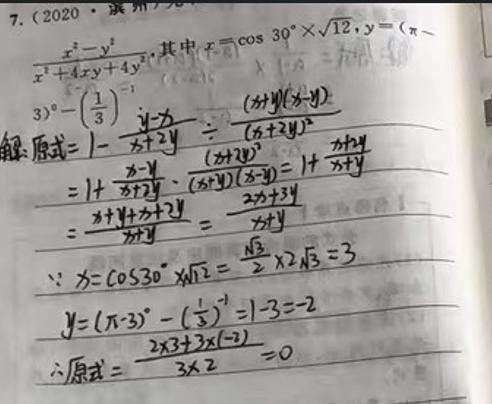 7.(2020·滨州)
(x²-y²)/(x²+4xy+4y²),其中 x=cos 30°×√12,y=(π-
3)⁰-(1/3)⁻¹
解:原式=1-(y-x)/(x+2y)÷((x+y)(x-y))/((x+2y)²)
=1+(x-y)/(x+2y)·((x+2y)²)/((x+y)(x-y))=1+(x+2y)/(x+y)
=(x+y+x+2y)/(x+y)=(2x+3y)/(x+y)
∵ x=cos30°×√12=√3/2×2√3=3
y=(π-3)⁰-(1/3)⁻¹=1-3=-2
∴原式=(2×3+3×(-2))/(3×2)=0